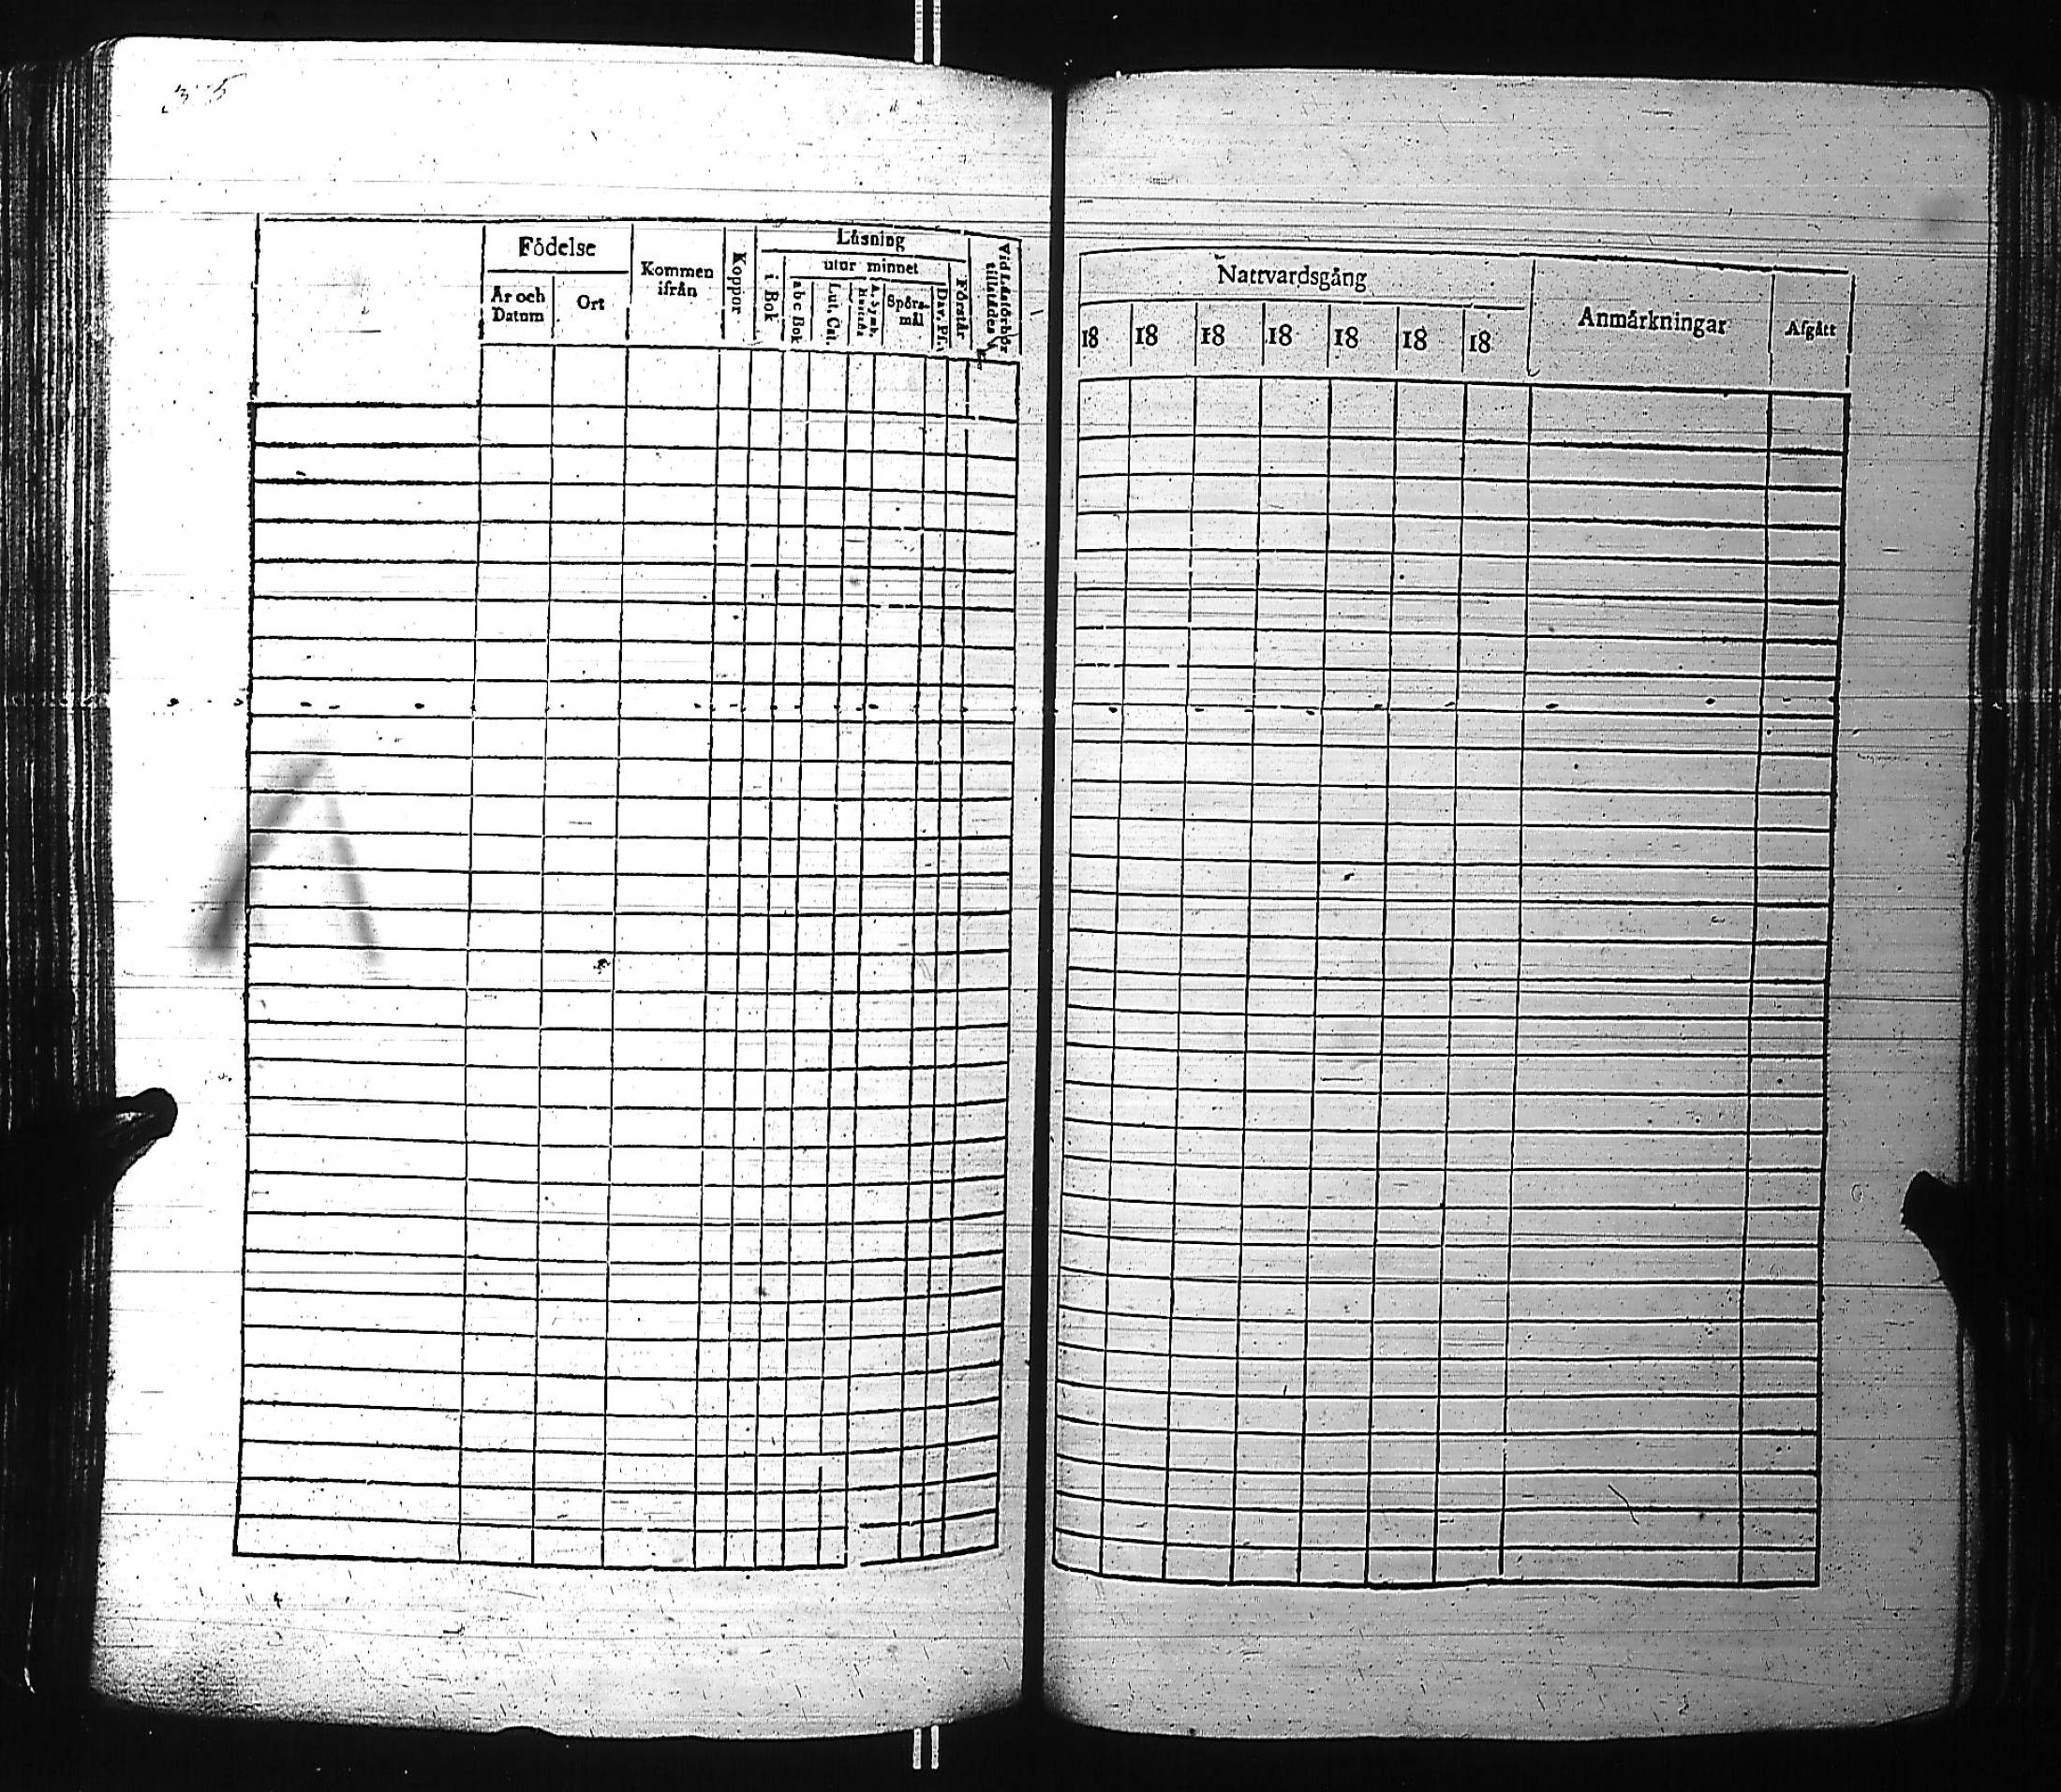 35
Födelse
År och
Datum
Ort
Kommen
ifrån
Koppor
Läsning
i Bok
utur minnet
abc Bok
Lut. Cat.
A. Symb.
Spörs-
mål
Dav. Ps.
Förstår
Vid Läsförhör
tillstädes
Nattvardsgång
18 18 18 18 18 18 18
Anmärkningar
Afgått